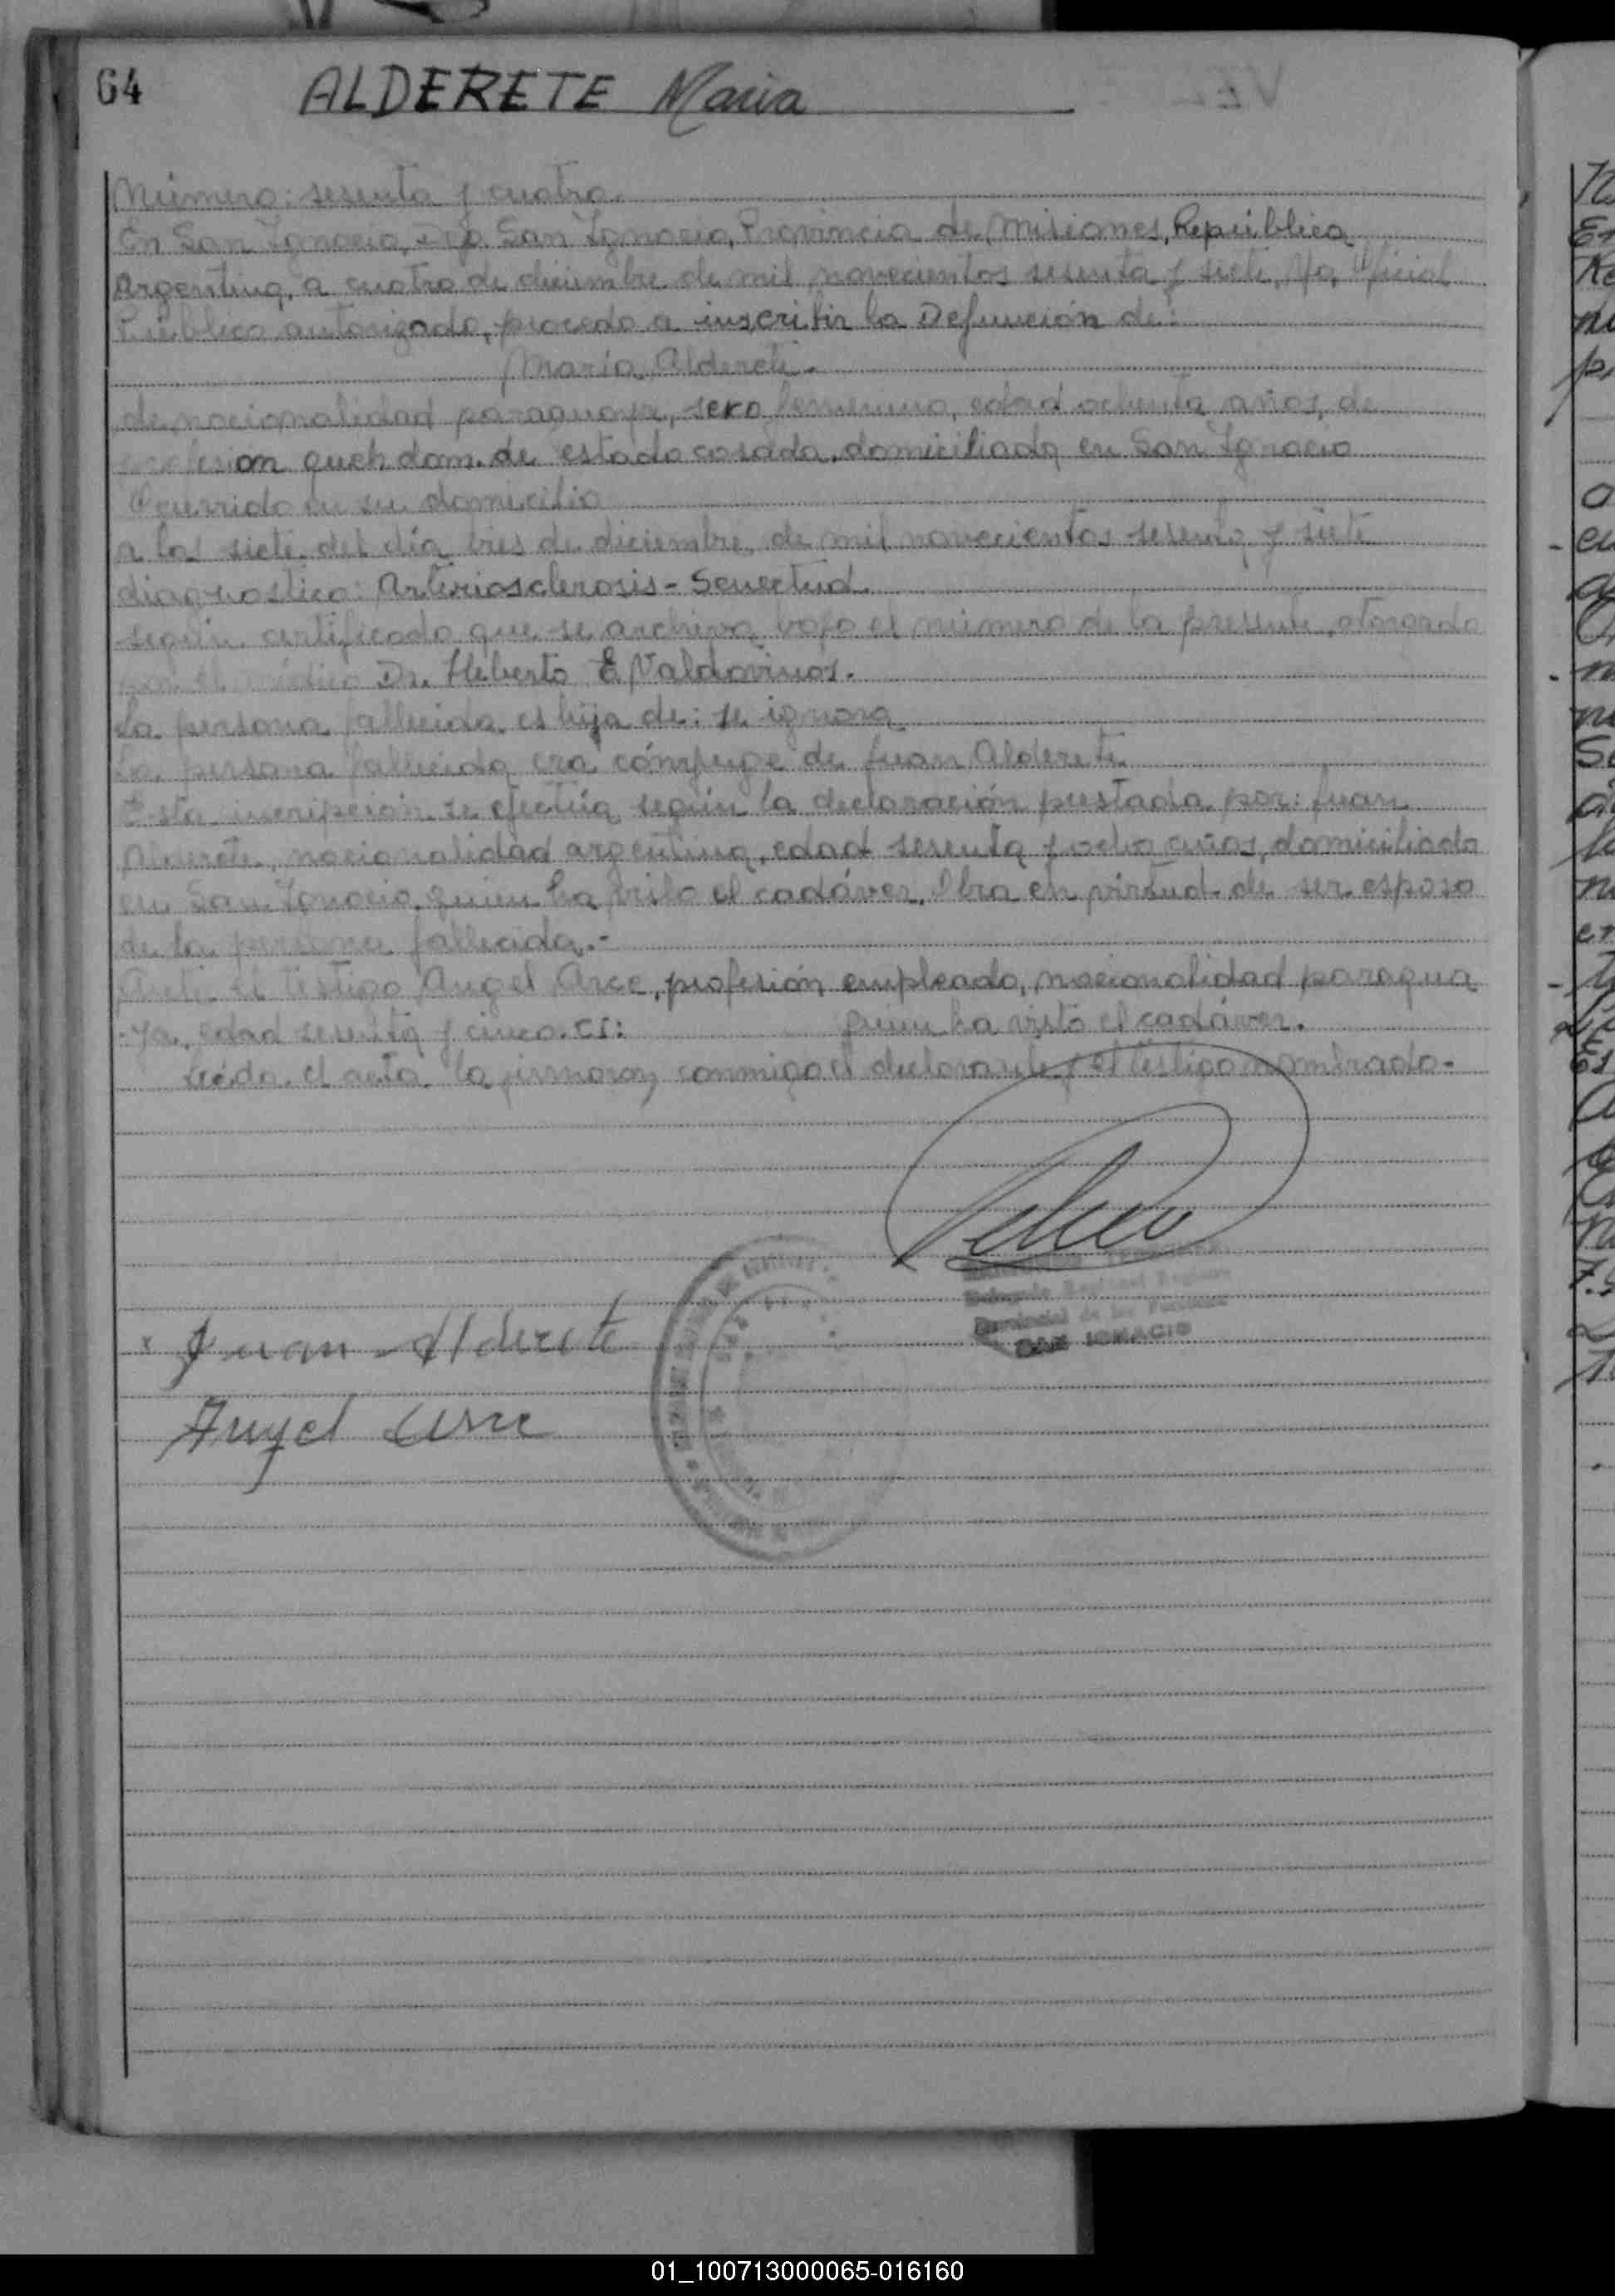 64
ALDERETE Maria
Número: sesenta y cuatro.
En San Ignacio, Dep. San Ignacio, Provincia de Misiones, República
Argentina, a cuatro de diciembre de mil novecientos sesenta y siete, Yo, Oficial
Público autorizado, procedo a inscribir la Defunción de:
María Alderete.
de nacionalidad paraguaya, sexo femenino, edad ochenta años, de
profesion queh. dom. de estado casada, domiciliada en San Ignacio
Ocurrido en su domicilio
a las siete del día tres de diciembre, de mil novecientos sesenta y siete
diagnostico: Arteriosclerosis - Senectud.
según certificado que se archiva bajo el número de la presente, otorgado
por el médico Dr. Heberto E Valdovinos.
La persona fallecida es hija de: se ignora
La persona fallecida era cónyuge de Juan Alderete
Esta incripción se efectúa según la declaración prestada por: Juan
Alderete, nacionalidad argentina, edad sesenta y ocho años, domiciliado
en San Ignacio, quien ha visto el cadáver. Obra en virtud de ser esposo
de la persona fallecida.-
Ante el testigo Angel Arce, profesión empleado, nacionalidad paragua
-ya, edad sesenta y cinco. CI: quien ha visto el cadáver.
Leída el acta la firman conmigo el declarante y el testigo nombrado.-
Delegado Regional Registro
Provincial de las Personas
SAN IGNACIO
Juan Alderete
Angel Arce
01_100713000065-016160